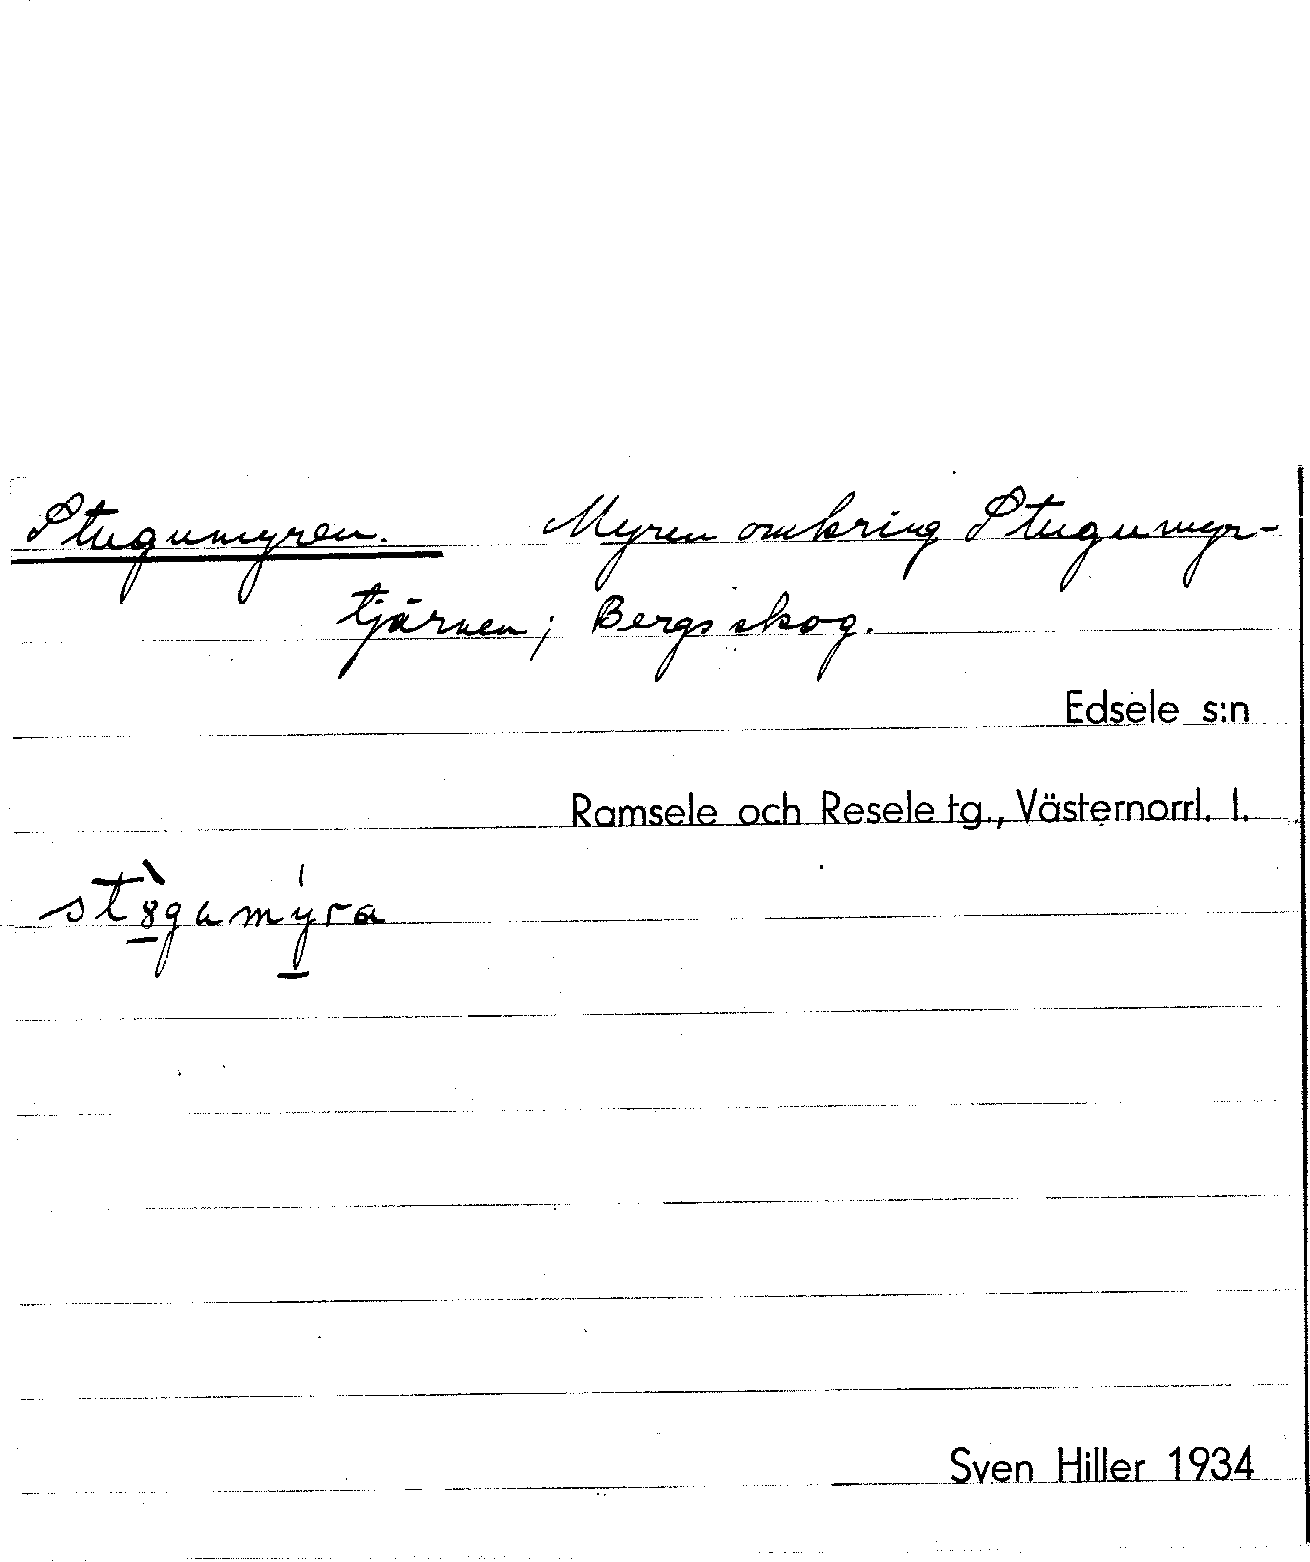 Stugumyren. Myren omkring Stugumyr-
tjärnen; Bergs skog.
Edsele s:n
Ramsele och Resele tg., Västernorrl. l.
st8̱̀gumý̱ra
Sven Hiller 1934